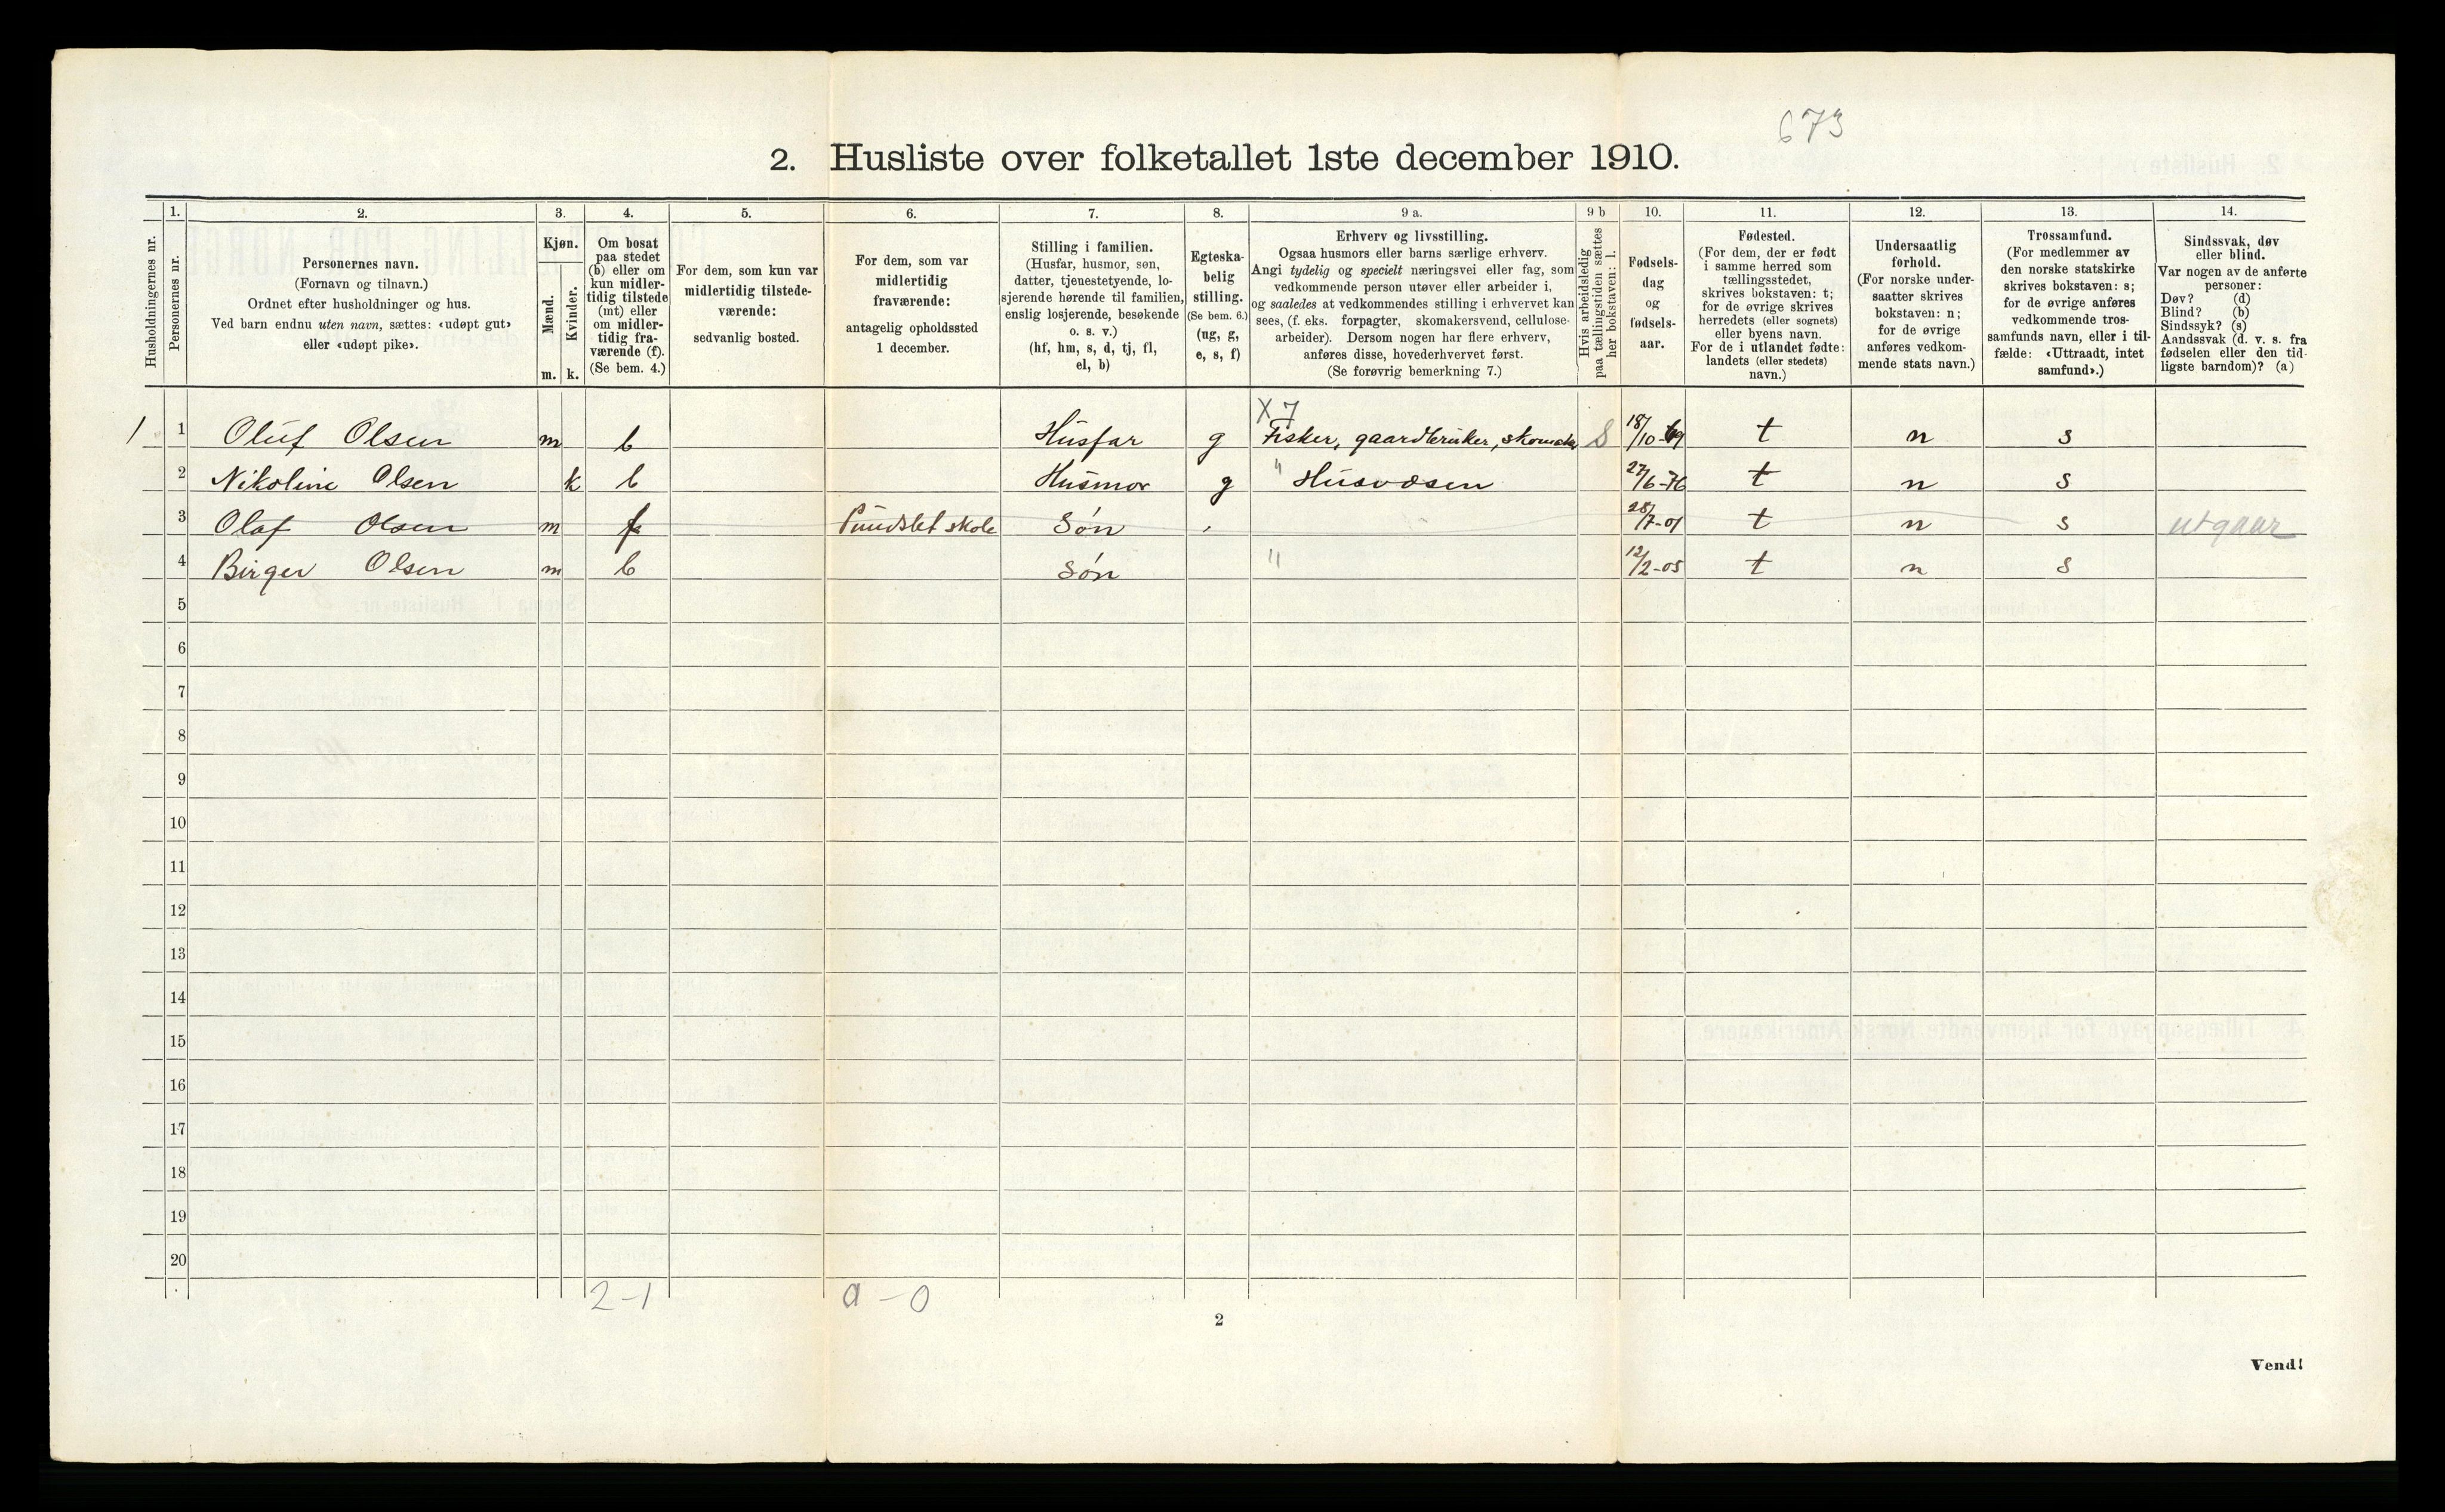 673
2. Husliste over folketallet 1ste december 1910.
Husholdningernes nr.
1.
Personernes nr.
2.
Personernes navn.
(Fornavn og tilnavn.)
Ordnet efter husholdninger og hus.
Ved barn endnu uten navn, sættes: «udøpt gut»
eller «udøpt pike».
3.
Kjøn.
Mænd.
Kvinder.
m. k.
4.
Om bosat
paa stedet
(b) eller om
kun midler-
tidig tilstede
(mt) eller
om midler-
tidig fra-
værende (f).
(Se bem. 4.)
5.
For dem, som kun var
midlertidig tilstede-
værende:
sedvanlig bosted.
6.
For dem, som var
midlertidig
fraværende:
antagelig opholdssted
1 december.
7.
Stilling i familien.
(Husfar, husmor, søn,
datter, tjenestetyende, lo-
sjerende hørende til familien,
enslig losjerende, besøkende
o. s. v.)
(hf, hm, s, d, tj, fl,
el, b)
8.
Egteska-
belig
stilling.
(Se bem. 6.)
(ug, g,
e, s, f)
9 a.
Erhverv og livsstilling.
Ogsaa husmors eller barns særlige erhverv.
Angi tydelig og specielt næringsvei eller fag, som
vedkommende person utøver eller arbeider i,
og saaledes at vedkommendes stilling i erhvervet kan
sees, (f. eks. forpagter, skomakersvend, cellulose-
arbeider). Dersom nogen har flere erhverv,
anføres disse, hovederhvervet først.
(Se forøvrig bemerkning 7.)
9 b
Hvis arbeidsledig
paa tællingstiden sættes
her bokstaven: l.
10.
Fødsels-
dag
og
fødsels-
aar.
11.
Fødested.
(For dem, der er født
i samme herred som
tællingsstedet,
skrives bokstaven: t;
for de øvrige skrives
herredets (eller sognets)
eller byens navn.
For de i utlandet fødte:
landets (eller stedets)
navn.)
12.
Undersaatlig
forhold.
(For norske under-
saatter skrives
bokstaven: n;
for de øvrige
anføres vedkom-
mende stats navn.)
13.
Trossamfund.
(For medlemmer av
den norske statskirke
skrives bokstaven: s;
for de øvrige anføres
vedkommende tros-
samfunds navn, eller i til-
fælde: «Uttraadt, intet
samfund».)
14.
Sindssvak, døv
eller blind.
Var nogen av de anførte
personer:
Døv? (d)
Blind? (b)
Sindssyk? (s)
Aandssvak (d. v. s. fra
fødselen eller den tid-
ligste barndom)? (a)
X 7
1 1 Oluf Olsen m b Husfar g Fisker, gaardbruker, skomaker S 18/10-69 t n s
2 Nikoline Olsen k b Husmor g " Husvæsen 27/6-76 t n s
3 Olaf Olsen m f skole Søn 28/7-01 t n s utgaar
4 Birger Olsen m b Søn " 12/2-05 t n s
5
6
7
8
9
10
11
12
13
14
15
16
17
18
19
20
2-1 a-0
2
Vend!